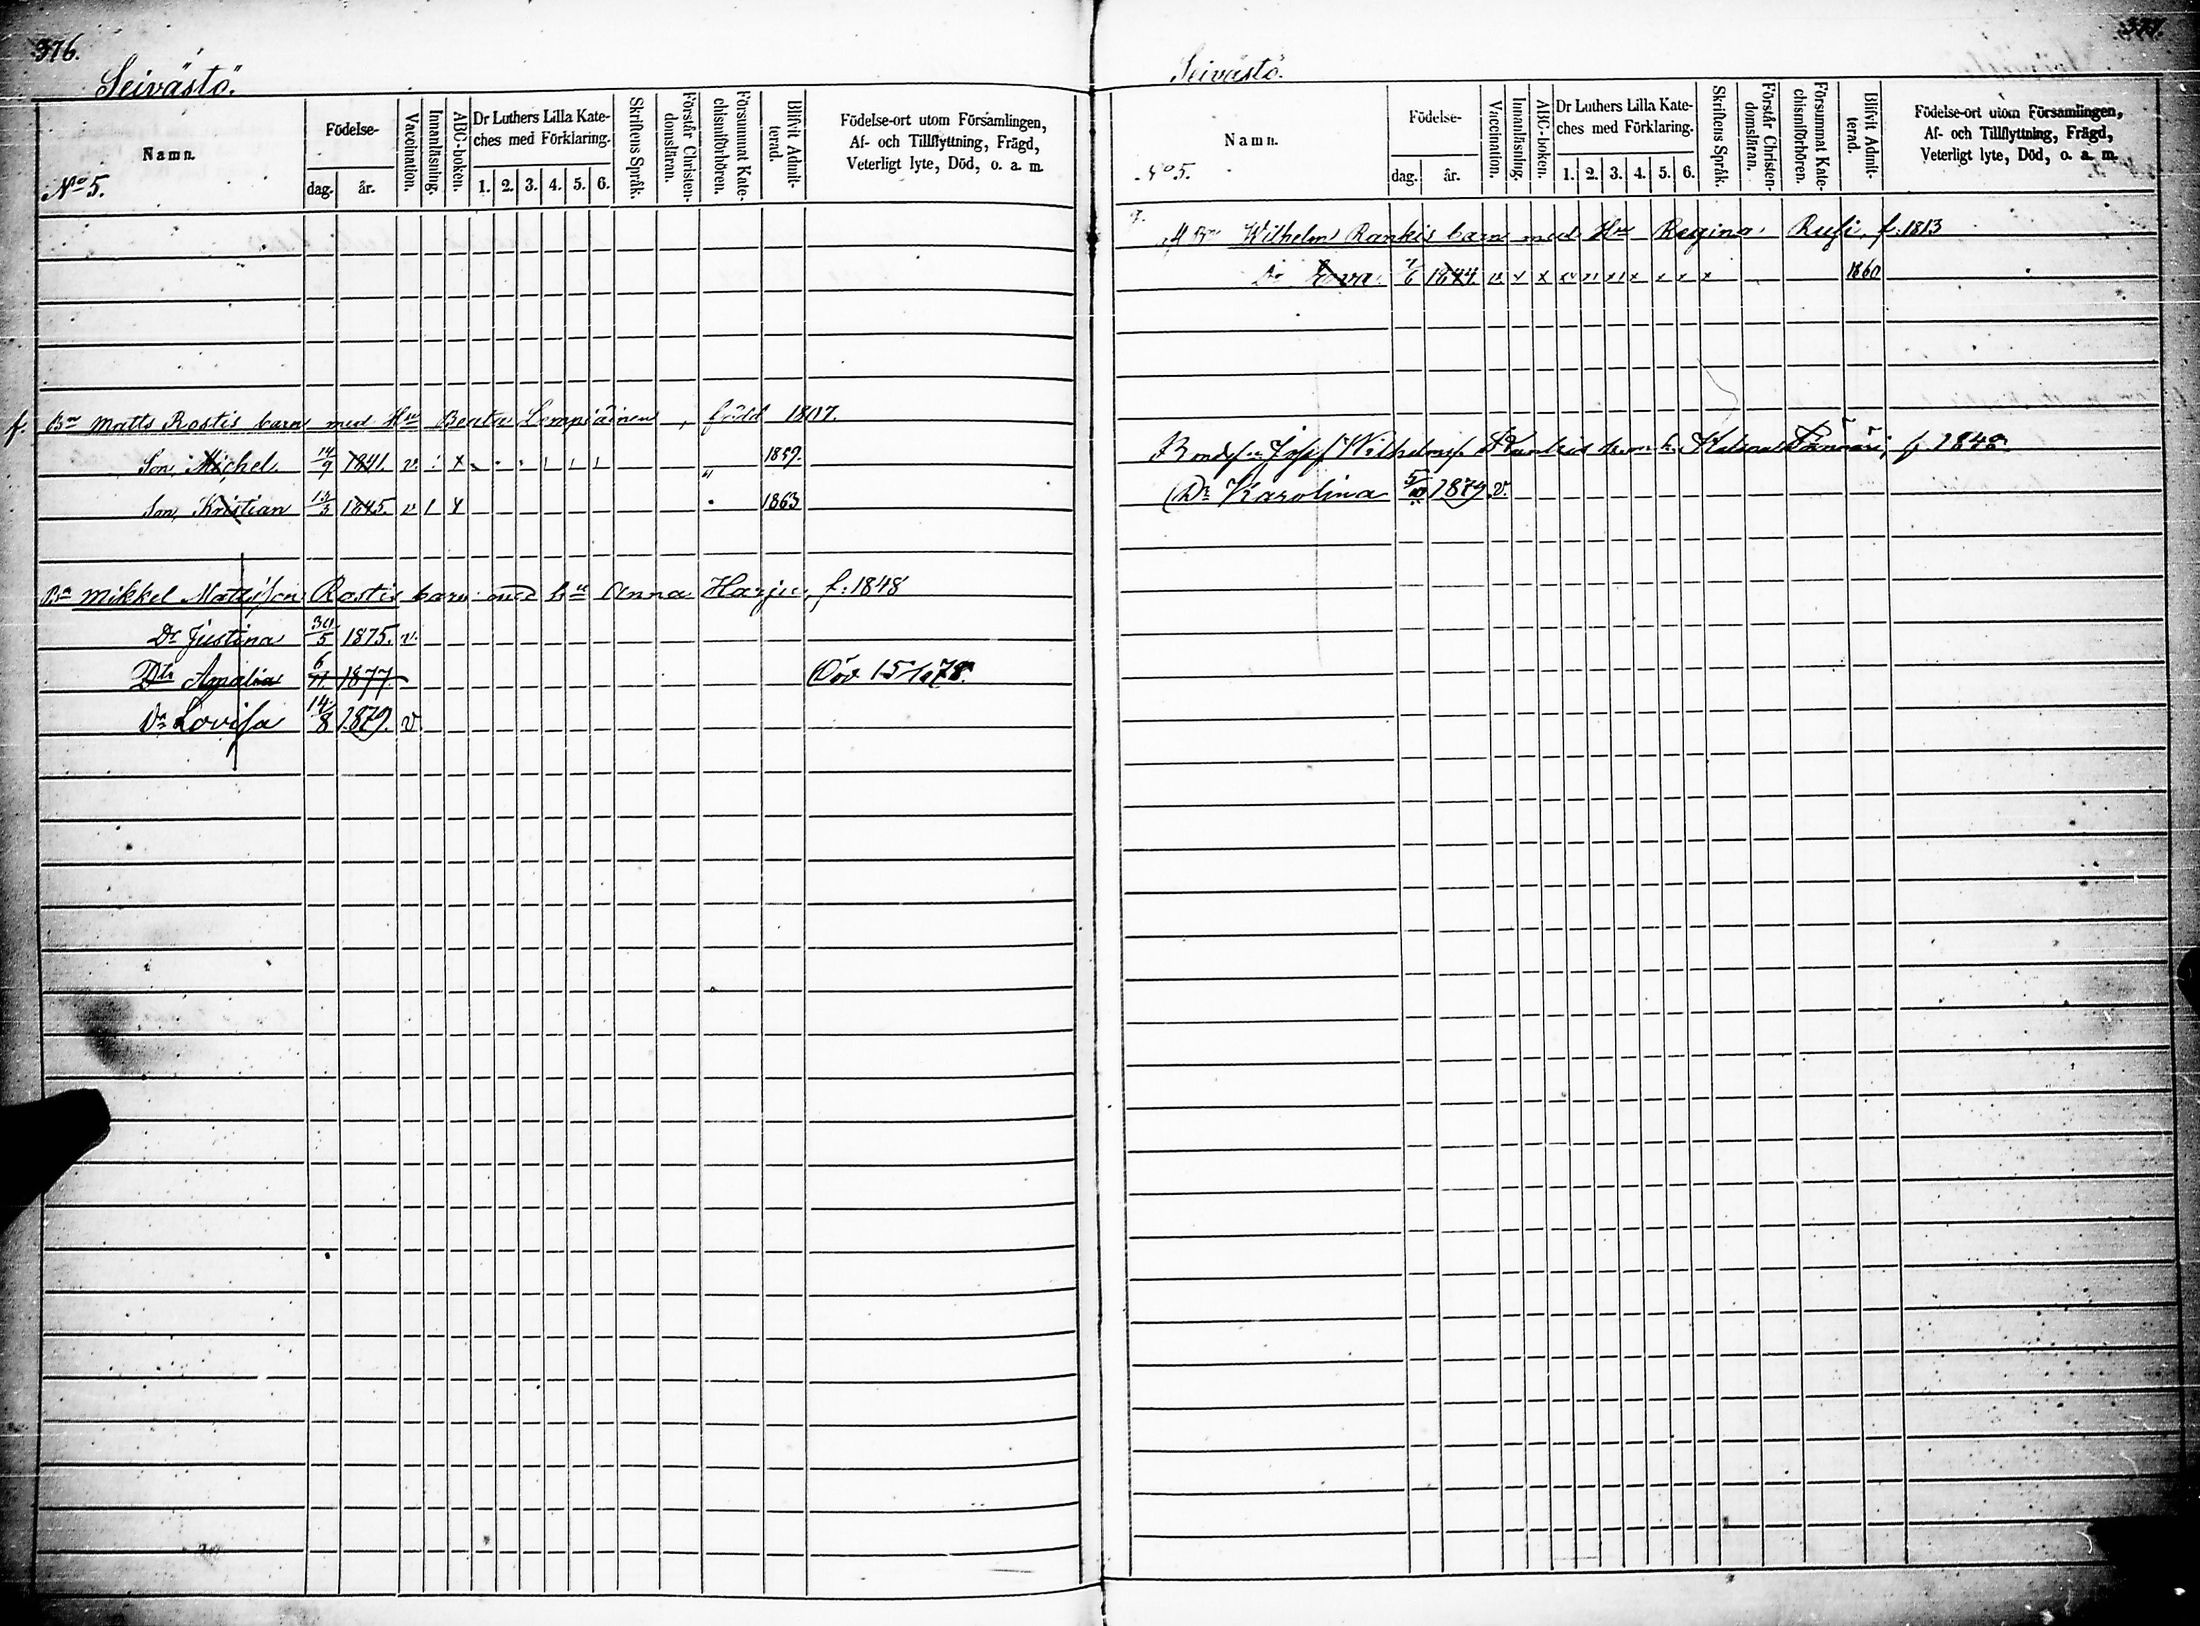 376.
Seivästö.
Namn.
No 5.
Födelse-
dag. år.
Vaccination.
Innanläsning.
ABC-boken.
Dr Luthers Lilla Kate-
ches med Förklaring.
1. 2. 3. 4. 5. 6.
Skriftens Språk.
Förstår Christen-
domsläran.
Försummat Kate-
chismiförhören.
Blifvit Admit-
terad.
Födelse-ort utom Församlingen,
Af- och Tillflyttning, Frägd,
Veterligt lyte, Död, o. a. m.
f. Bn Matts Rostis barn med Hu Beata Lempiäinen, född 1807.
Son, Michel 14/9 1841. v. 1859.
Son, Kristian 13/3 1845. v 1863
Bn Mikkel Mattsson Rostis barn med hu Anna Harju, f: 1848
Dr Justina 30/5 1875. v.
Dtr Amalia 6/11 1877. Död 15/10 78.
Dr Lovisa 14/8 1879. v.
377.
Seivästö.
Namn.
No 5.
Födelse-
dag. år.
Vaccination.
Innanläsning.
ABC-boken.
Dr Luthers Lilla Kate-
ches med Förklaring.
1. 2. 3. 4. 5. 6.
Skriftens Språk.
Förstår Christen-
domsläran.
Försummat Kate-
chismiförhören.
Blifvit Admit-
terad.
Födelse-ort utom Församlingen,
Af- och Tillflyttning, Frägd,
Veterligt lyte, Död, o. a. m.
g. Bn Wilhelm Rankis barn med Hu Regina Rusi, f. 1813
Dr Eva 1844. v. x x x x x x x x x x 1860
Bondes. Josef Wilhelmss. Rankis f. 1848
Dr Karolina 5/10 1879. v.